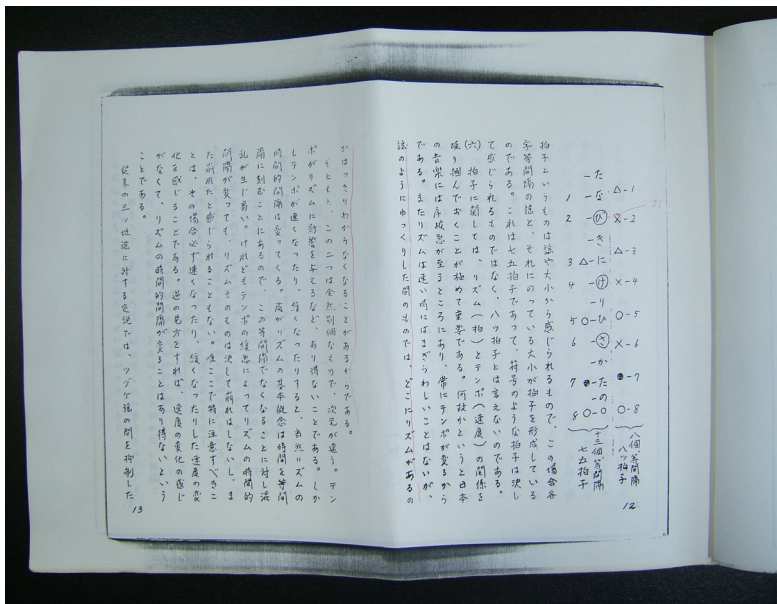 八個等間隔
八ツ拍子
△-1
×-2
△-3
×-4
○-5
×-6
●-7
○-8
十三個等間隔
七五拍子
-た
1 -な
2 -ひ
-き
3 △-に
4 -け
-り
5 ○-ひ
6 -さ
-か
7 ●-た
-の
8 ○-○
拍子というものは謡や大小から感じられるもので、この場合各
字等間隔の謡と、それにのっている大小が拍子を形成している
のである。これは七五拍子であって、符号のような拍子は決し
て感じられるものではなく、八ツ拍子とは言えないのである。
(六) 拍子に関しては、リズム(拍)とテンポ(速度)の関係を
確り掴んでおくことが極めて重要である。何故かというと日本
の音楽には序破急が至るところにあり、常にテンポが変るから
である。またリズムは速い時にはまぎらわしいことはないが、
謡のようにゆっくりした間のものでは、どこにリズムがあるの
12
かはっきりわからなくなることがあるからである。
もともと、この二つは全然別個なもので、次元が違う。テン
ポがリズムに影響を与えるなど、あり得ないことである。しか
しテンポが速くなったり、緩くなったりすると、当然リズムの
時間的間隔は変ってくる。処がリズムの基本概念は時間を等間
隔に刻むことにあるので、この等間隔でなくなることに対し混
乱が生じ易い。けれどもテンポの緩急によってリズムの時間的
間隔が変っても、リズムそのものは決して崩れはしないし、ま
た崩れたと感じられることもない。唯ここで特に注意すべきこ
とは、その場合必ず速くなったり、緩くなったりした速度の変
化を感じることである。逆の見方をすれば、速度の変化の感じ
がなくて、リズムの時間的間隔が変ることはあり得ないという
ことである。
従来の三ツ地謡に対する定説では、ツヅケ謡の間を抑制した
13